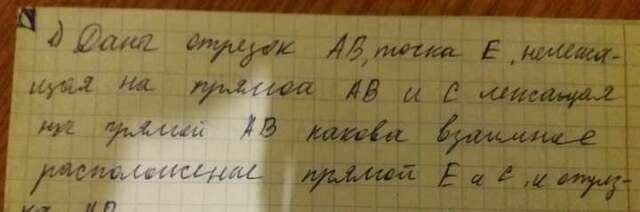 1) Даны отрезок АВ, точка Е, нележа-
щая на прямоа АВ и С лежащая
на прямой АВ какова взаимное
расположение прямой Е и С, и отрез-
ка АВ